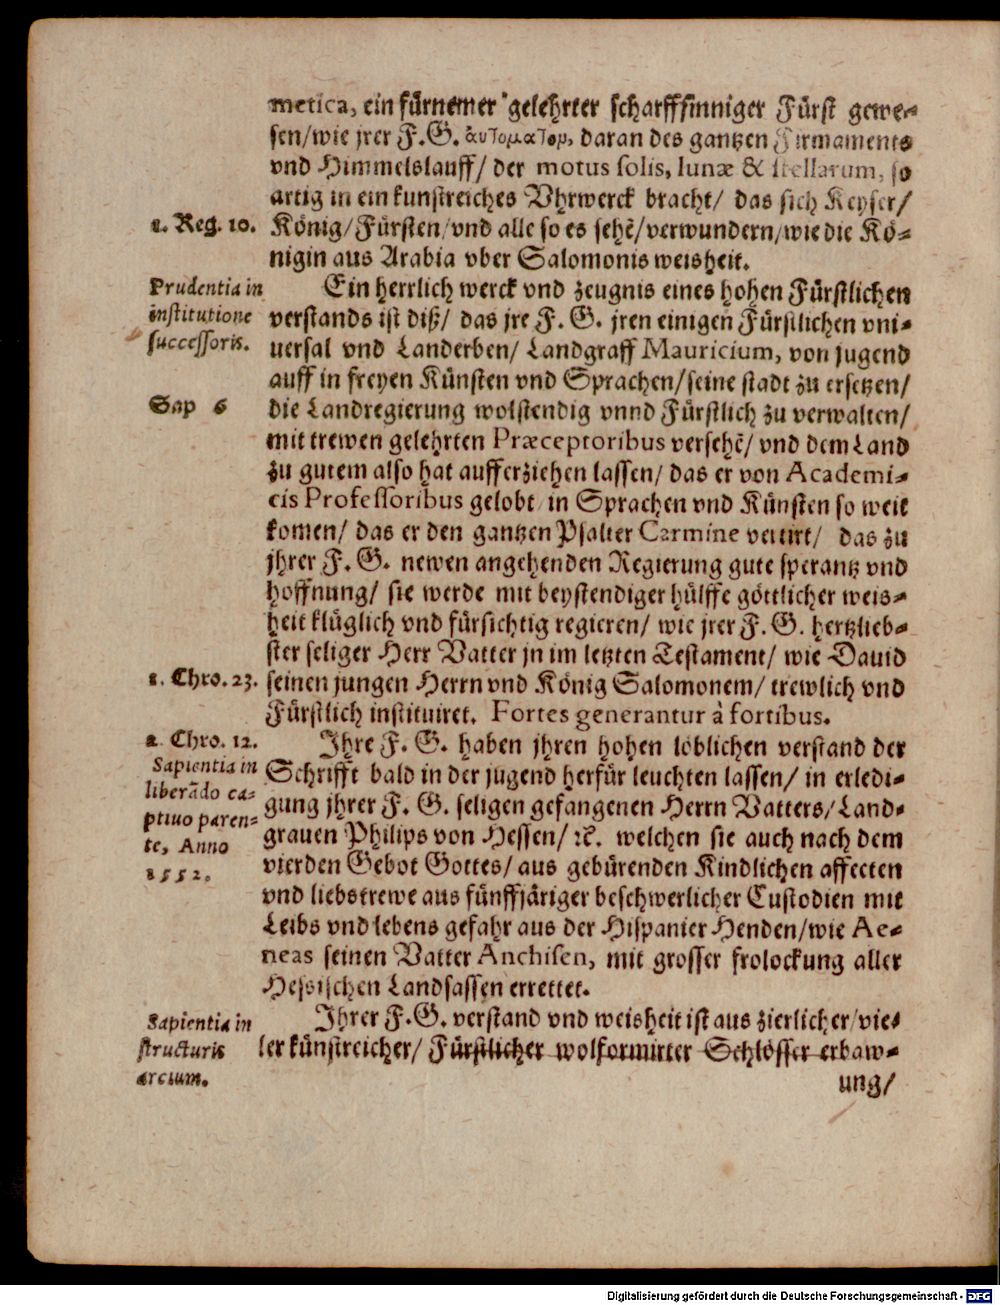 metica, ein fürnemer gelehrter scharffsinniger Fürst gewe-
sen/wie jrer F.G. ἀυτοματον, daran des gantzen Firmaments
vnd Himmelslauff/ der motus solis, lunæ & stellarum, so
artig in ein kunstreiches Vhrwerck bracht/ das sich Keyser/
1. Reg. 10. König/Fürsten/vnd alle so es sehẽ/verwundern/wie die Kö-
nigin aus Arabia vber Salomonis weisheit.
Prudentia in Ein herrlich werck vnd zeugnis eines hohen Fürstlichen
institutione verstands ist diß/ das jre F. G. jren einigen Fürstlichen vni-
successoris. uersal vnd Landerben/ Landgraff Mauricium, von jugend
auff in freyen Künsten vnd Sprachen/seine stadt zu ersetzen/
Sap 6 die Landregierung wolstendig vnnd Fürstlich zu verwalten/
mit trewen gelehrten Præceptoribus versehẽ/ vnd dem Land
zu gutem also hat aufferziehen lassen/ das er von Academi-
cis Professoribus gelobt/in Sprachen vnd Künsten so weit
komen/ das er den gantzen Psalter Carmine vertirt/ das zu
jhrer F. G. newen angehenden Regierung gute sperantz vnd
hoffnung/ sie werde mit beystendiger hülffe göttlicher weis-
heit klüglich vnd fürsichtig regieren/ wie jrer F. G. hertzlieb-
ster seliger Herr Vatter jn im letzten Testament/ wie Dauid
1. Chro. 23. seinen jungen Herrn vnd König Salomonem/ trewlich vnd
Fürstlich instituiret. Fortes generantur à fortibus.
2. Chro. 12. Ihre F. G. haben jhren hohen löblichen verstand der
Sapientia in Schrifft bald in der jugend herfür leuchten lassen/ in erledi-
liberãdo ca- gung jhrer F. G. seligen gefangenen Herrn Vatters/Land-
ptiuo paren- grauen Philips von Hessen/ ꝛc. welchen sie auch nach dem
te, Anno vierden Gebot Gottes/ aus gebürenden Kindlichen affecten
1552. vnd liebstrewe aus fünffjäriger beschwerlicher Custodien mit
Leibs vnd lebens gefahr aus der Hispanier Henden/wie Ae-
neas seinen Vatter Anchisen, mit grosser frolockung aller
Hessischen Landsassen errettet.
Sapientia in Ihrer F.G. verstand vnd weisheit ist aus zierlicher/vie-
structuris ler künstreicher/ Fürstlicher wolformirter Schlösser erbaw-
arcium. ung/
Digitalisierung gefördert durch die Deutsche Forschungsgemeinschaft - DFG